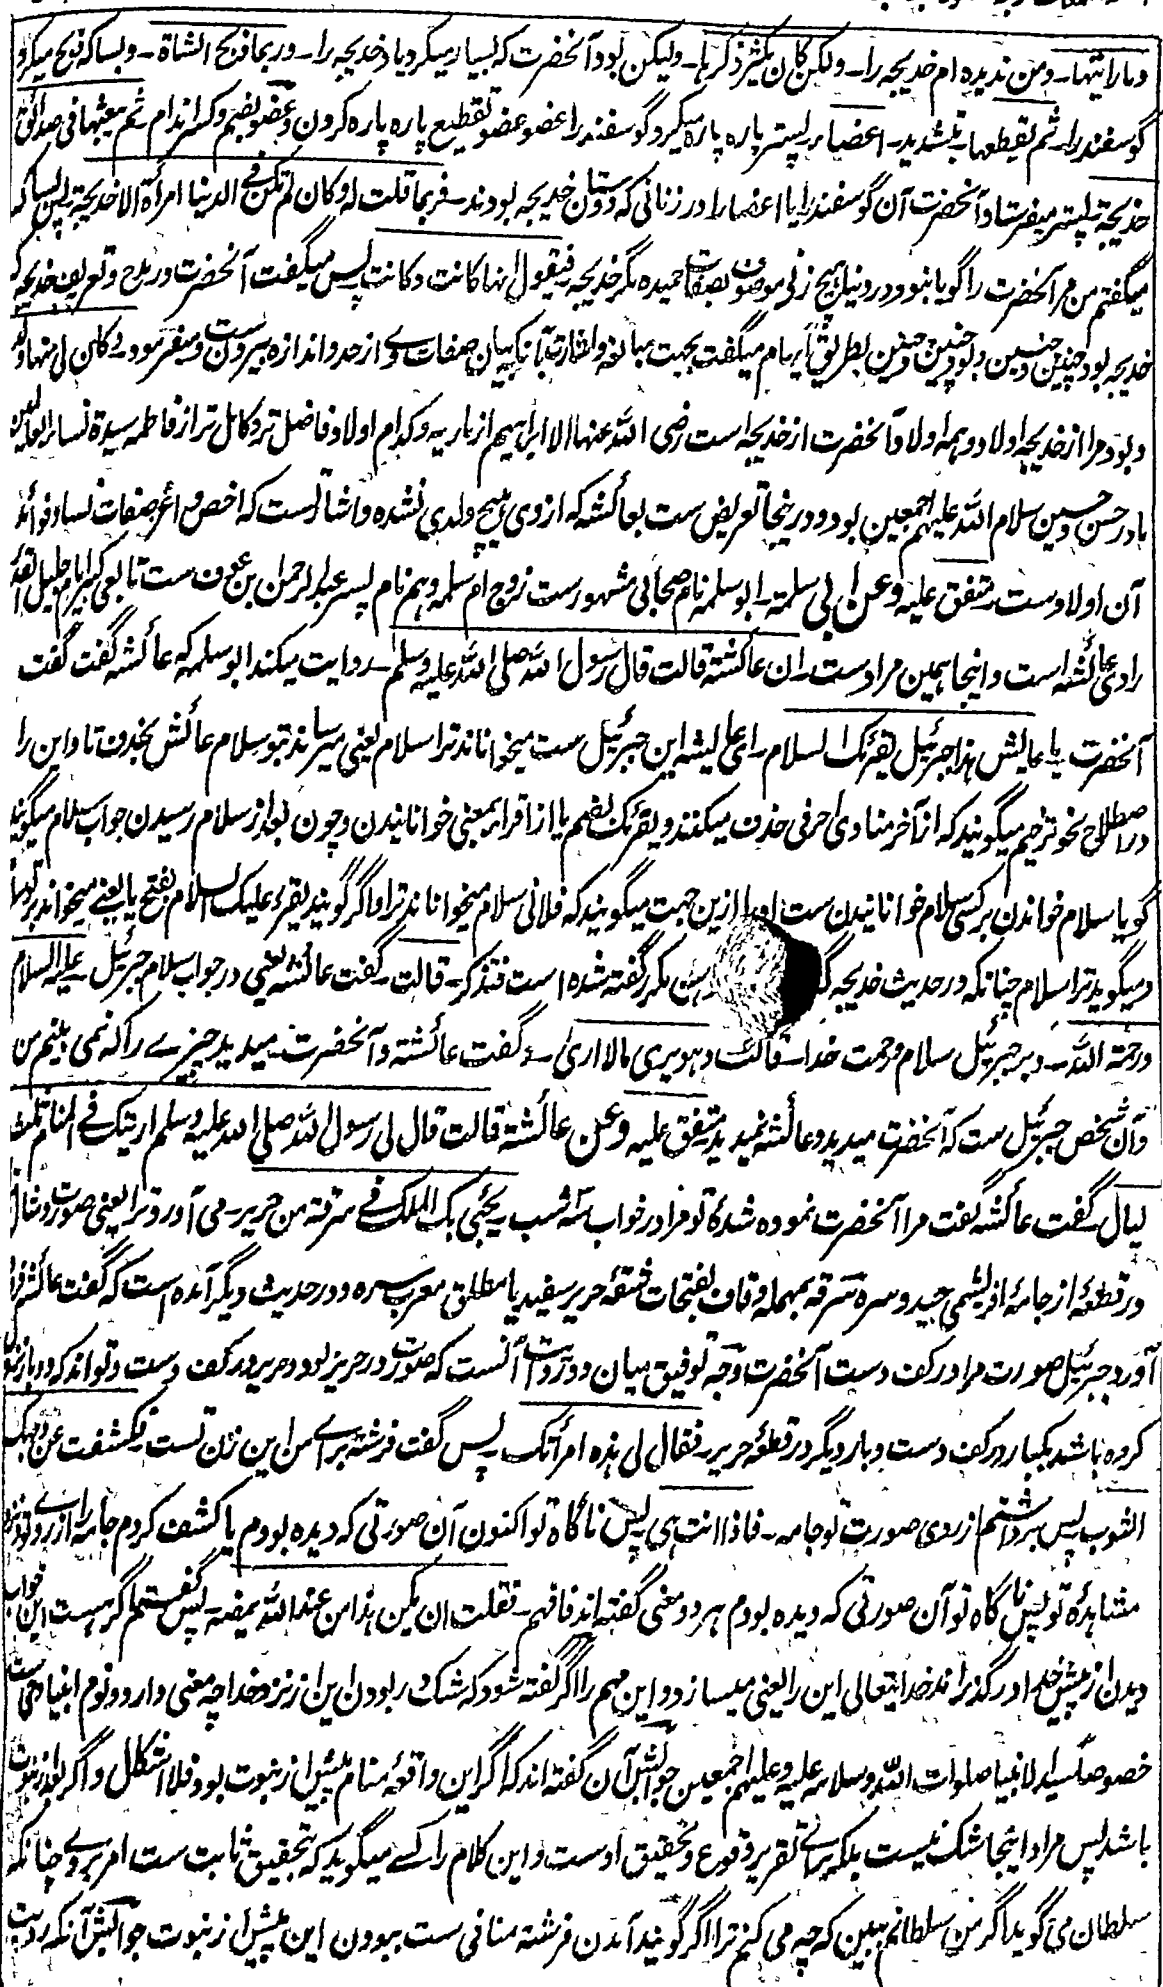 و ما رایتها۔ و من ندیده ام خدیجه را۔ ولکن کان یکثر ذکرها۔ ولیکن بود آنحضرت که بسیار میکرد یاد خدیجه را۔ و ربما ذبح الشاة۔ و بسا که ذبح میکرد
گوسفند را۔ ثم یقطعها۔ بتشدید۔ اعضاء۔ پستر پاره پاره میکرد گوسفند را عضو عضو تقطیع پاره پاره کردن و عضو بضم و کسر اندام ثم یبعثها فی صدائق
خدیجة۔ پستر میفرستاد آنحضرت آن گوسفند را یا اعضا را در زنانی که دوستان خدیجه بودند۔ فربما قلت له و کان لم تکن فی الدنیا امرأة الا خدیجة۔ پس بسا که
میگفتم من مر آنحضرت را گویا نبود در دنیا هیچ زنی موصوف بصفات حمیده مگر خدیجه۔ فیقول انها کانت و کانت۔ پس میگفت آنحضرت در مدح و تعریف خدیجه که
خدیجه بود چنین و چنین و بود چنین و چنین بطریق ابهام میگفت بجهت مبالغه و اشارت بآنکه بیان صفات وے از حد و اندازه بیرون ست و میفرمود۔ و کان لی منها ولد
و بود مرا از خدیجه اولاد و همه اولاد آنحضرت از خدیجه است رضی الله عنها الا ابراهیم از ماریه و کدام اولاد فاضل تر و کامل تر از فاطمه سیدة نساء العالمین
مادر حسن و حسین سلام الله علیهم اجمعین بود و درینجا تعریض ست بعائشه که از وی هیچ ولدی نشده و اشارتست که اخص و اغر صفات نسا و فوائد
آن اولاد ست۔ متفق علیه و عن ابی سلمة۔ ابو سلمه نام صحابی مشهور ست زوج ام سلمه و هم نام پسر عبدالرحمن بن عوف ست تابعی کبیر امام جلیل القدر
راوی عائشه است و اینجا همین مراد ست۔ ان عائشة قالت قال رسول الله صلی الله علیه وسلم۔ روایت میکند ابو سلمه که عائشه گفت گفت
آنحضرت۔ یا عایش هذا جبرئیل یقرئک السلام۔ ای عایشه این جبرئیل ست میخواناند ترا سلام یعنی میرساند بتو سلام عائش بحذف تا و این را
در اصطلاح نحو ترخیم میگویند که از آخر منادی حرفی حذف میکنند و یقرئک بضم یا از اقراء بمعنی خوانانیدن و چون بعد از سلام رسیدن جواب سلام میگویند
گویا سلام خواندن بر کسی سلام خوانانیدن ست او را ازین جهت میگویند که فلانی سلام میخواناند ترا و اگر گویند یقرء علیک السلام بفتح یا یعنی میخواند بر تو
و میگوید ترا سلام چنانکه در حدیث خدیجه مکرر گفته شده است فتذکر۔ قالت۔ گفت عائشه یعنی در جواب سلام جبرئیل۔ علیه السلام
و رحمة الله۔ و بر جبرئیل سلام و رحمت خدا۔ قالت و هو یری مالا اری۔ گفت عائشة و آنحضرت میدید چیزے را که نمی بینم من
و آن شخص جبرئیل ست که آنحضرت میدید و عائشه نمیدید۔ متفق علیه و عن عائشة قالت قال لی رسول الله صلی الله علیه وسلم اریتک فی المنام ثلث
لیال۔ گفت عائشه گفت مرا آنحضرت نموده شدۀ تو مرا در خواب سه شب۔ یجئی بک الملک فی سرقة من حریر۔ می آورد ترا یعنی صورت و مثال ترا
در قطعۀ از جامۀ ابریشمی جید و سره سرقه بمهمله و قاف بفتحات شقۀ حریر سفید یا مطلق معرب سره و در حدیث دیگر آمده است که گفت عائشه فرود
آورد جبرئیل صورت مرا در کف دست آنحضرت وجه توفیق میان دو روایت آنست که صورت در حریر بود و حریر در کف دست و تواند که دو بار نزول
کرده باشد یکبار در کف دست و بار دیگر در قطعۀ حریر۔ فقال لی هذه امرأتک۔ پس گفت فرشته براے من این زن تست۔ فکشفت عن وجهک
الثوب پس برداشتم از روی صورت تو جامه۔ فاذا انت هی۔ پس ناگاه تو اکنون آن صورتی که دیده بودم یا کشف کردم جامه را از روے تو نزد
مشاهدۀ تو پس ناگاه تو آن صورتی که دیده بودم هر دو معنی گفته اند فافهم۔ فقلت ان یکن هذا من عند الله یمضه۔ پس گفتم اگر هست این خواب
دیدن از پیش خدا در گذراند خدایتعالی این را یعنی میسازد و این مهم را اگر گفته شود که شک در بودن این از نزد خدا چه معنی دارد و نوم انبیا وحی ست
خصوصا سید الانبیا صلوات الله و سلامه علیه و علیهم اجمعین جوابش آن گفته اند که اگر این واقعۀ منام پیش از نبوت بود فلا اشکال و اگر بعد از نبوت
باشد پس مراد اینجا شک نیست بلکه براے تقریر وقوع و تحقیق اوست و این کلام را کسے میگوید که بتحقیق ثابت ست امر بروے چنانکه
سلطان می گوید اگر من سلطانم ببین که چه می کنم ترا اگر گویند آمدن فرشته منافی ست ببودن این پیش از نبوت جوابش آنکه رویت